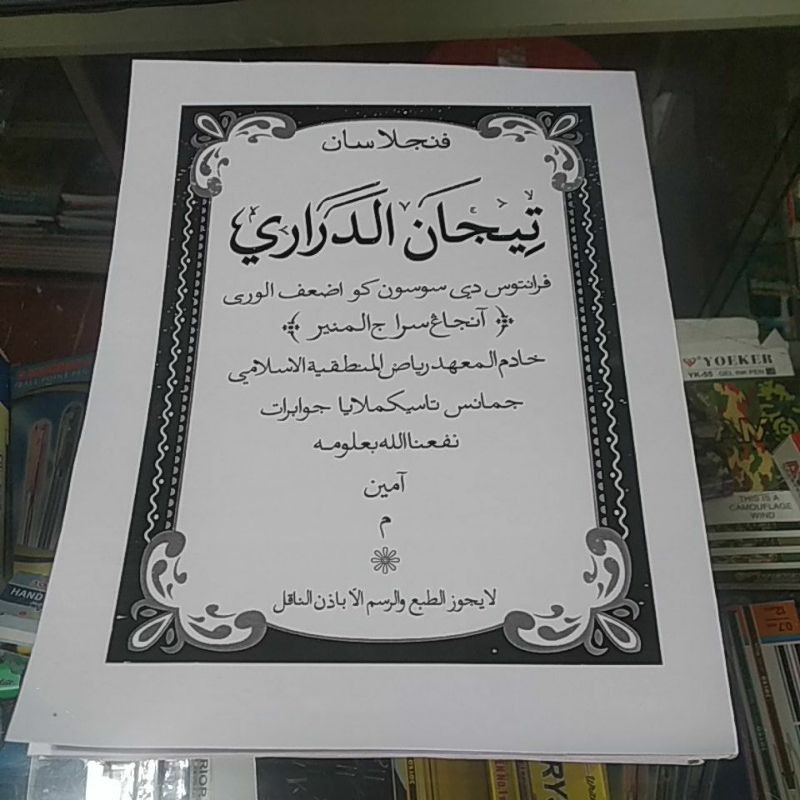 فنجلاسان
تِيجَان الدَرَاري
فرانتوس دي سوسون كو اضعف الورى
﴿ آنجاڠ سراج المنير ﴾
خادم المعهد رياض المنطقية الاسلامي
جمانس تاسيكملايا جوابرات
نفعنا الله بعلومه
آمين
م
لا يجوز الطبع والرسم الا باذن الناقل
YOEKER
YK-55 GEL INK PEN
THIS IS A
CAMOUFLAGE
WIND
HAND
0.7
12